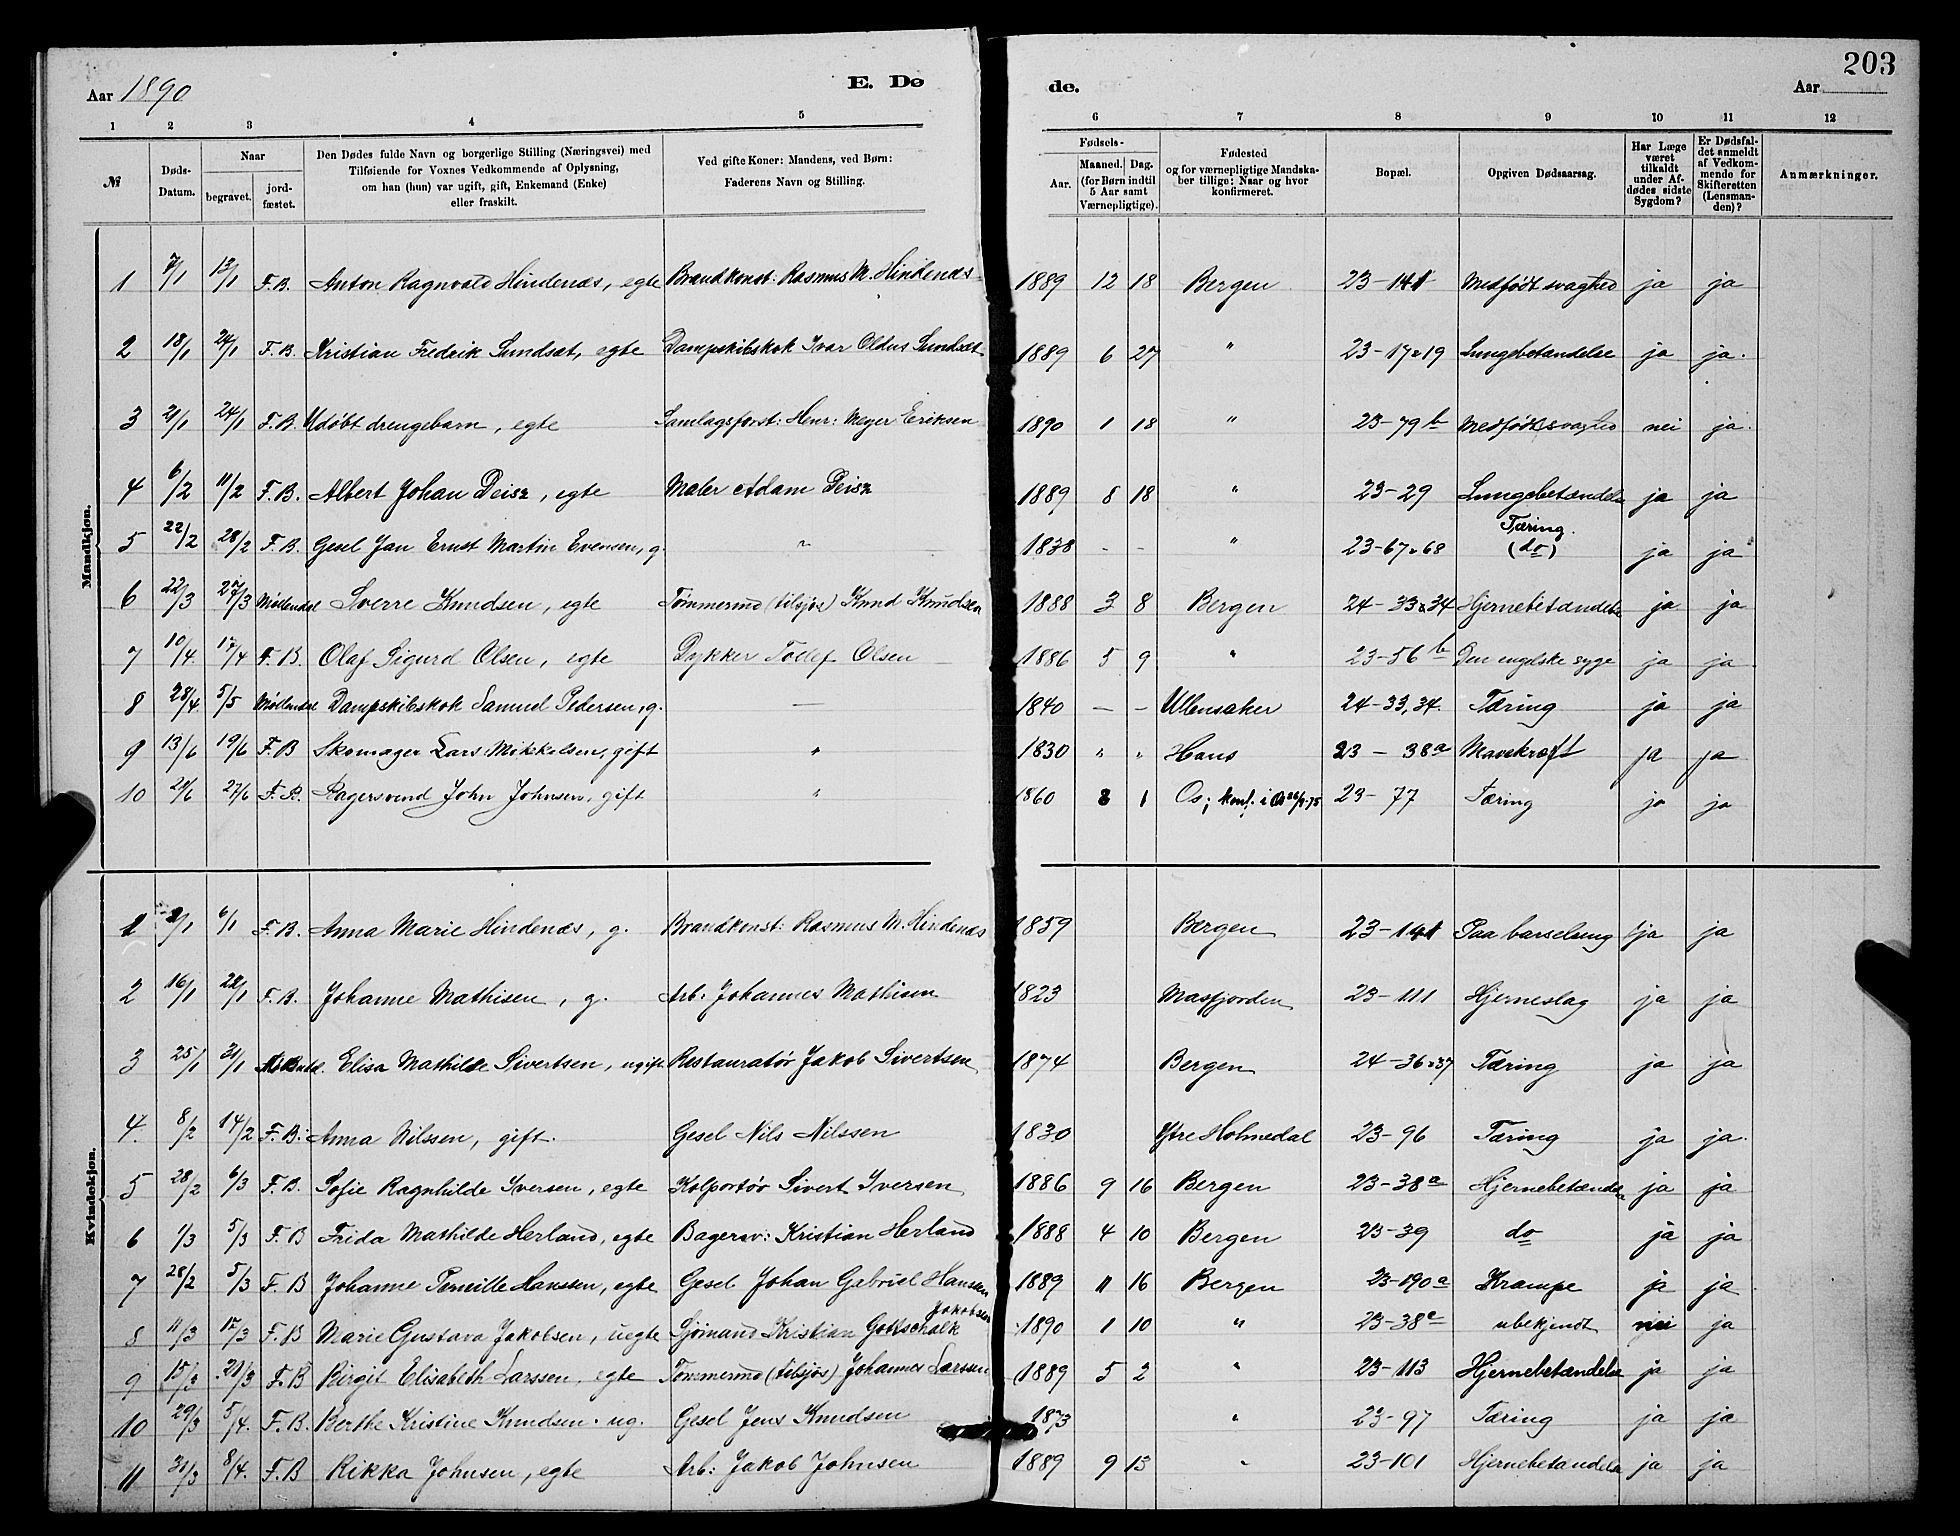 203
Aar 1890 E. Dø de. Aar
1 2 3 4 5 6 7 8 9 10 11 12
№ Døds-Datum. Naar begravet. jord-fæstet. Den Dødes fulde Navn og borgerlige Stilling (Næringsvei) med Tilføiende for Voxnes Vedkommende af Oplysning, om han (hun) var ugift, gift, Enkemand (Enke) eller fraskilt. Ved gifte Koner: Mandens, ved Børn: Faderens Navn og Stilling. Fødsels- Aar. Maaned. Dag. (for Børn indtil 5 Aar samt Værnepligtige). Fødested og for værnepligtige Mandskaber tillige: Naar og hvor konfirmeret. Bopæl. Opgiven Dødsaarsag. Har Læge været tilkaldt under Afdødes sidste Sygdom? Er Dødsfaldet anmeldt af Vedkommende for Skifteretten (Lensmanden)? Anmærkninger.
Mandkjøn.
1 7/1 13/1 F.B. Anton Ragnvald Hindenæs, egte Brandkonst: Rasmus M. Hindenæs 1889 12 18 Bergen 23-141 Medfødt svaghed ja ja
2 18/1 24/1 F.B. Kristian Fredrik Sundsæt, egte Dampskibskok Ivar Oldus Sundsæt 1889 6 27 " 23-17&19 Lungebetændelse ja ja.
3 21/1 24/1 F.B. Udøbt drengebarn, egte Samlagsforst: Henr: Meyer Eriksen 1890 1 18 " 23-79b Medfødt svaghed nei ja.
4 6/2 11/2 F.B. Albert Johan Deisz, egte Maler Adam Deisz 1889 8 18 " 23-29 Lungebetændelse ja ja
5 22/2 28/2 F.B. Gesel Jan Ernst Martin Evensen, g. " 1838 - - " 23-67&68 Tæring. (do) ja ja
6 22/3 27/3 Møllendal Sverre Knudsen, egte Tømmermd (tilsjøs) Knud Knudsen 1888 3 8 Bergen 24-33&34 Hjernebetændelse ja ja
7 10/4 17/4 F.B. Olaf Sigurd Olsen, egte Dykker Tollef Olsen 1886 5 9 " 23-56b Den engelske syge ja ja
8 28/4 5/5 Møllendal Dampskibskok Samuel Pedersen, g. — 1840 - - Ullensaker 24-33,34. Tæring ja ja
9 13/6 19/6 F.B Skomager Lars Mikkelsen, gift " 1830 " " Haus 23-38a Mavekræft ja ja
10 21/6 27/6 F.B. Bagersvend John Johnsen, gift " 1860 8 1 Os; konf. i Os 26/9-75 23-77 Tæring ja ja
Kvindekjøn.
1 2/1 6/1 F.B. Anna Marie Hindenæs, g. Brandkonst: Rasmus M. Hindenæs 1859 Bergen 23-141 Paa barselseng ja ja
2 16/1 22/1 F.B. Johanne Mathisen, g. Arb: Johannes Mathisen 1823 Masfjorden 23-111 Hjerneslag ja ja
3 25/1 31/1 Elisa Mathilde Sivertsen, ugift Restauratør Jakob Sivertsen 1874 Bergen 24-36&37 Tæring ja ja
4. 8/2 14/2 F.B. Anna Nilssen, gift. Gesel Nils Nilssen 1830 Ytre Holmedal 23-96 Tæring ja ja.
5 28/2 6/3 F.B. Sofie Ragnhilde Iversen, egte Kolportør Sivert Iversen 1886 9 16 Bergen 23-38a Hjernebetændelse ja ja
6 1/3 5/3 F.B Frida Mathilde Herland, egte Bagersv: Kristian Herland 1888 4 10 Bergen 23-39 do ja ja
7 28/2 5/3 F.B Johanne Pernille Hanssen, egte Gesel Johan Gabriel Hanssen 1889 11 16 Bergen 23-190a Krampe ja ja
8 11/3 17/3 F.B Marie Gustava Jakobsen, uegte Sjømand Kristian Gottschalk Jakobsen 1890 1 10 " 23-38c ubekjendt nei ja
9 15/3 21/3 F.B Birgit Elisabeth Larssen, egte Tømmermd (tilsjøs) Johannes Larssen 1889 5 2 " 23-113 Hjernebetændelse ja ja
10 29/3 5/4. F.B. Berthe Kristine Knudsen. ug. Gesel Jens Knudsen 1873 " 23-97 Tæring ja ja
11 31/3 8/4. F.B Rikka Johnsen, egte Arb: Jakob Johnsen 1889 9 13 " 23-101 Hjernebetændelse ja ja